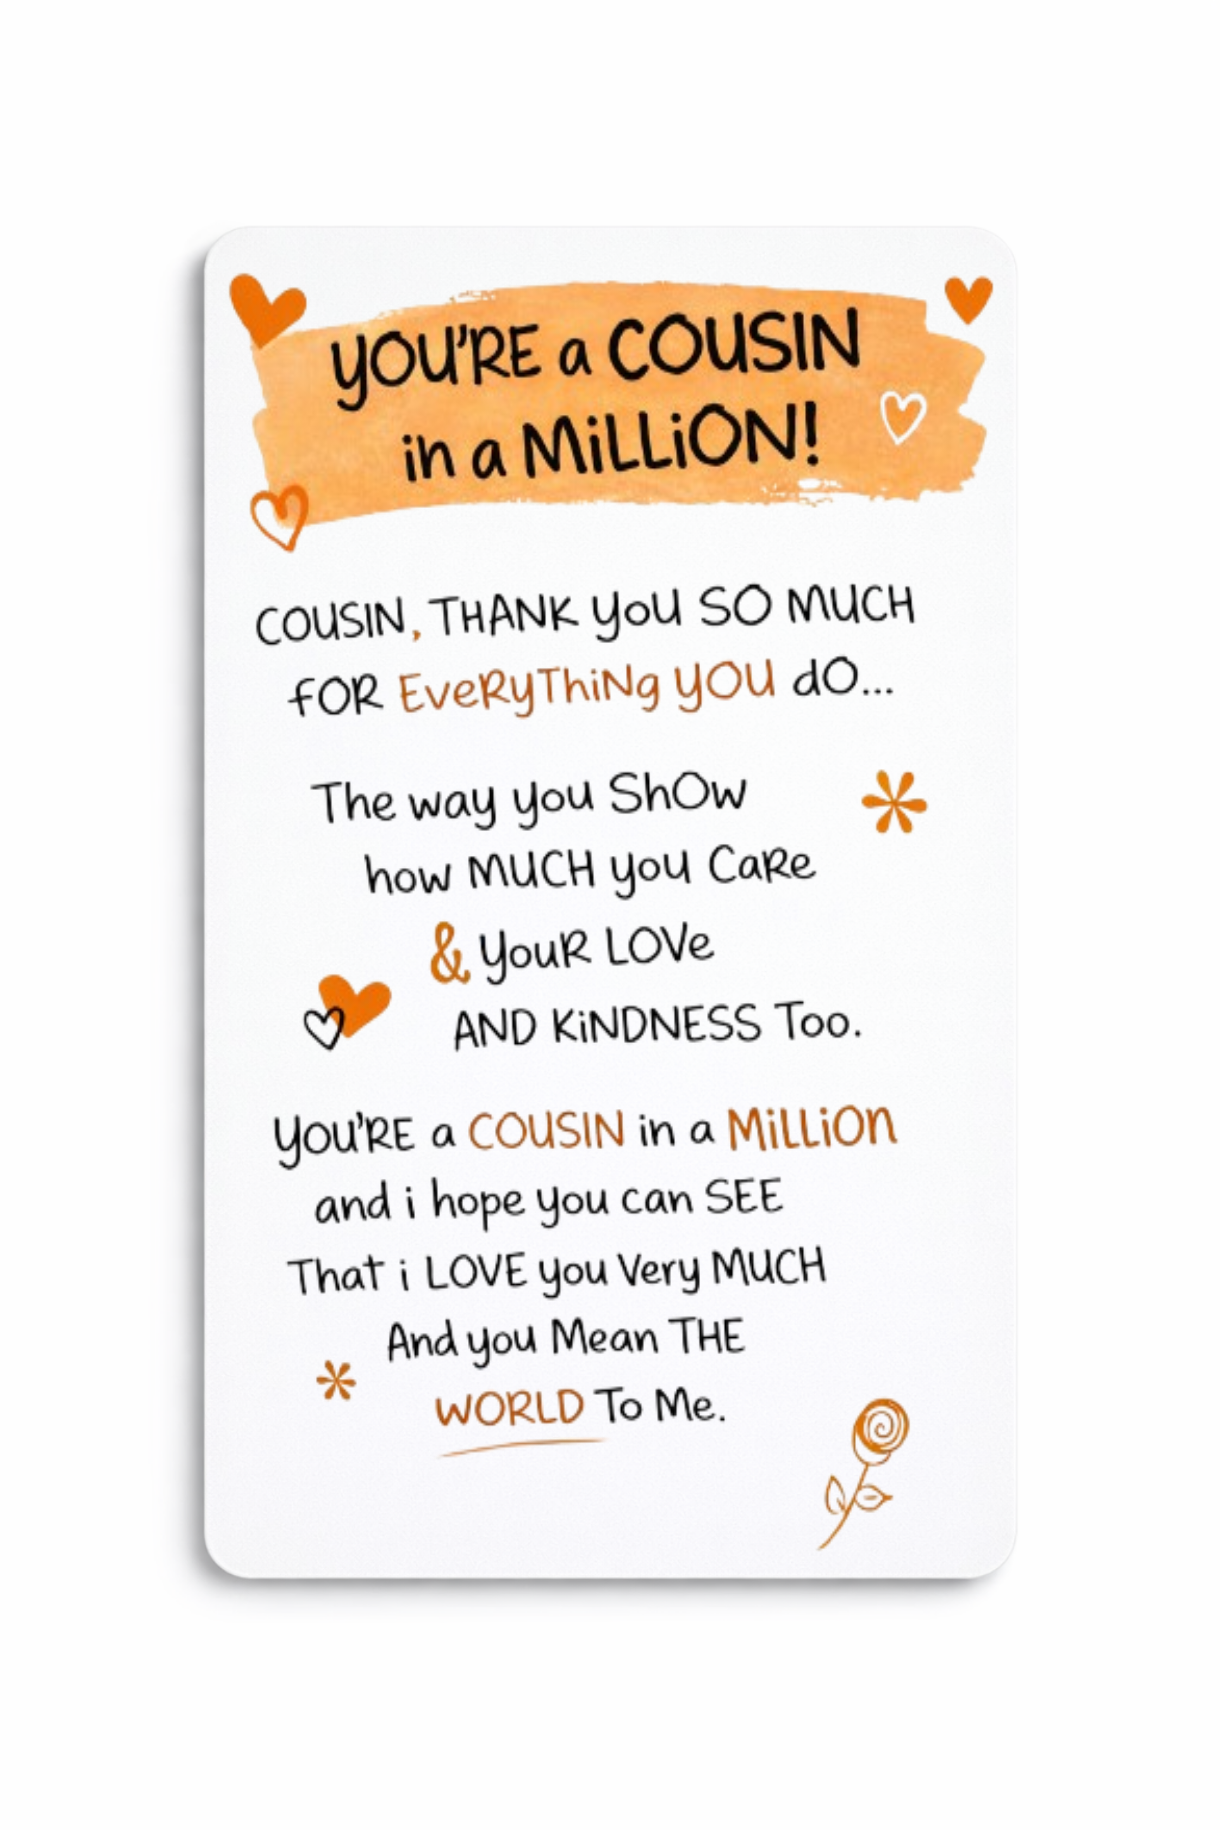 YOU'RE a COUSIN
in a MiLLiON!
COUSIN, THANK YoU SO MUCH
fOR EveRyThiNg YOU dO...
The way you ShOw
how MUCH you CaRe
& YouR LOVe
AND KiNDNESS Too.
YOU'RE a COUSIN in a MiLLiOn
and i hope you can SEE
That i LOVE you Very MUCH
And you Mean THE
WORLD To Me.